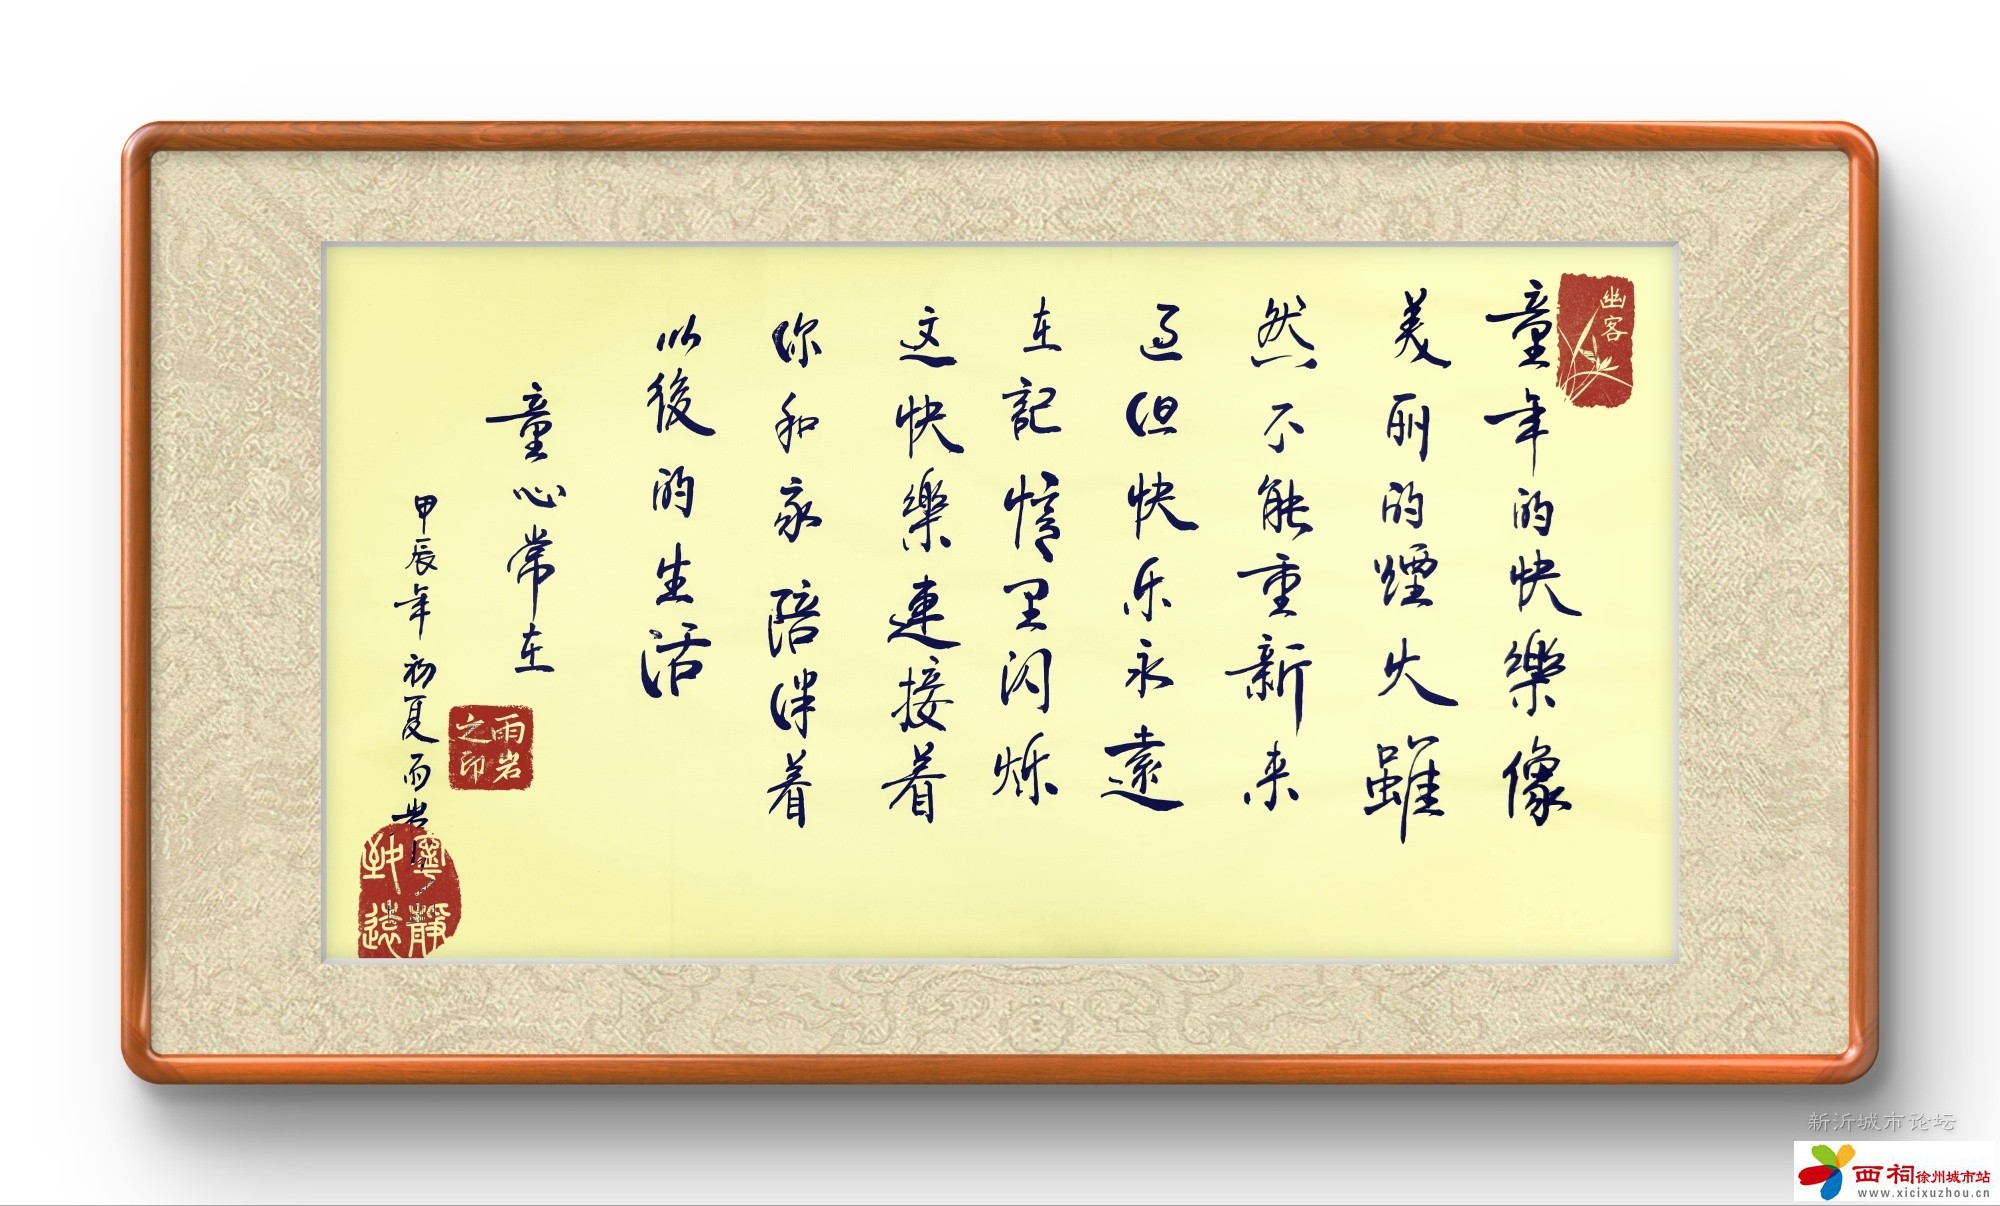 幽客
童年的快樂像
美丽的煙火雖
然不能重新来
过但快乐永遠
在記憶里闪烁
这快樂連接着
你和家陪伴着
以後的生活
童心常在
雨岩之印
甲辰年初夏雨岩
寧靜致遠
新沂城市论坛
西祠徐州城市站
www.xicixuzhou.cn